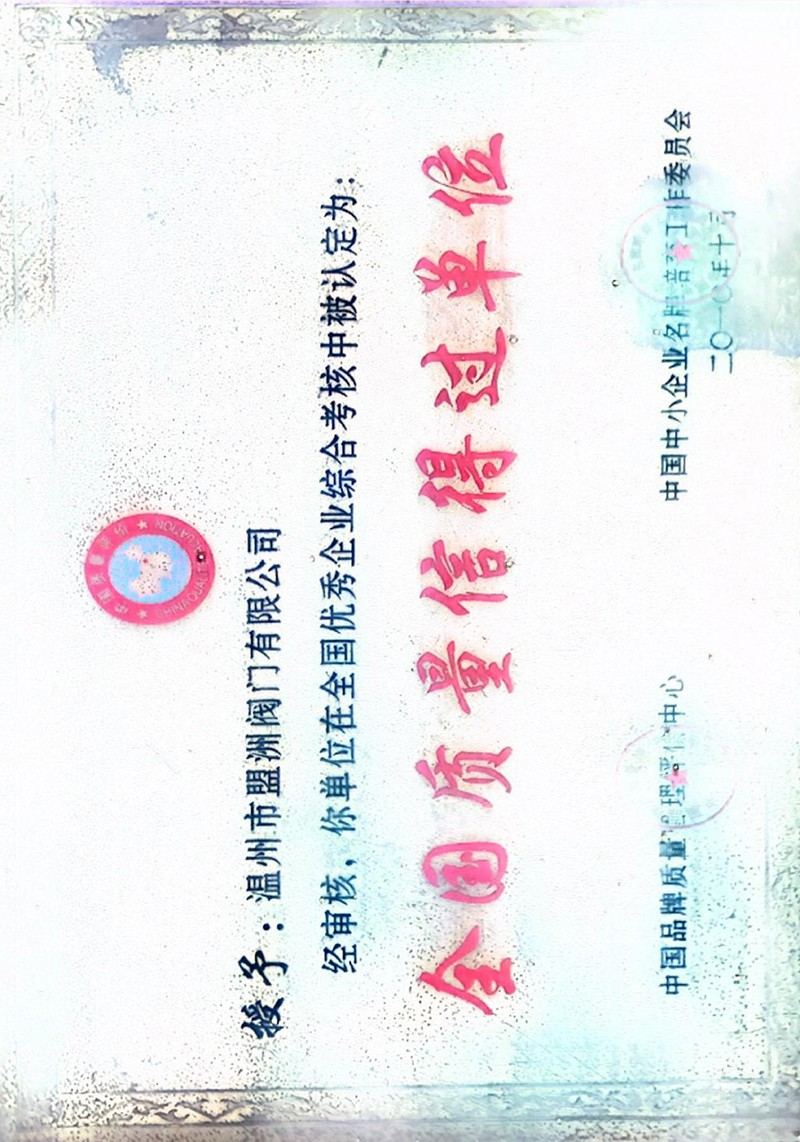 中国质量评价
CHINA QUALITY EVALUATION
授予：温州市盟洲阀门有限公司
经审核，你单位在全国优秀企业综合考核中被认定为：
全国质量信得过单位
中国品牌质量管理评价中心
中国中小企业名牌培育工作委员会
二〇一〇年十月